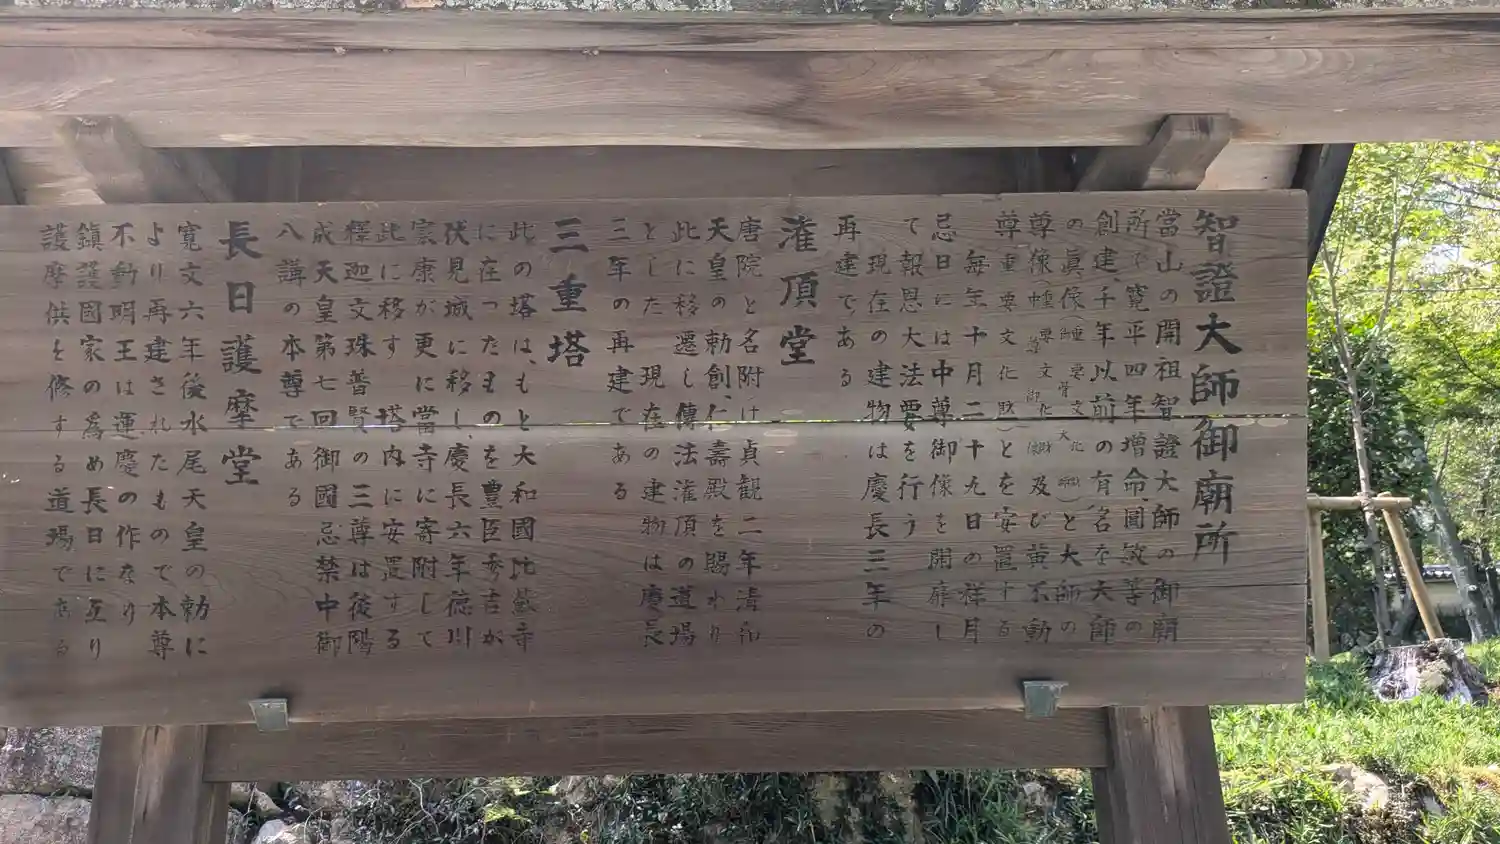 智證大師御廟所
當山の開祖智證大師の御廟
所で、寛平四年増命、圓敏等の
創建、千年以前の有名な大師
の眞像(重要文化財)と大師の
尊像(重要文化財)及び黄不動
尊(重要文化財)とを安置する
毎年十月二十九日の祥月
忌日には中尊御像を開扉し
て報恩大法要を行う
現在の建物は慶長三年の
再建である
潅頂堂
唐院と名附け貞観二年清和
天皇の勅創、仁壽殿を賜わり
此に移遷し傳法潅頂の道場
とした 現在の建物は慶長
三年の再建である
三重塔
此の塔は、もと大和國比蘇寺
に在ったものを豊臣秀吉が
伏見城に移し、慶長六年徳川
家康が更に當寺に寄附して
此に移す 塔内に安置する
釋迦文珠普賢の三尊は後陽
成天皇第七回御國忌禁中御
八講の本尊である
長日護摩堂
寛文六年後水尾天皇の勅に
より再建されたもので本尊
不動明王は運慶の作なり
鎮護國家の為め長日に亙り
護摩供を修する道場である